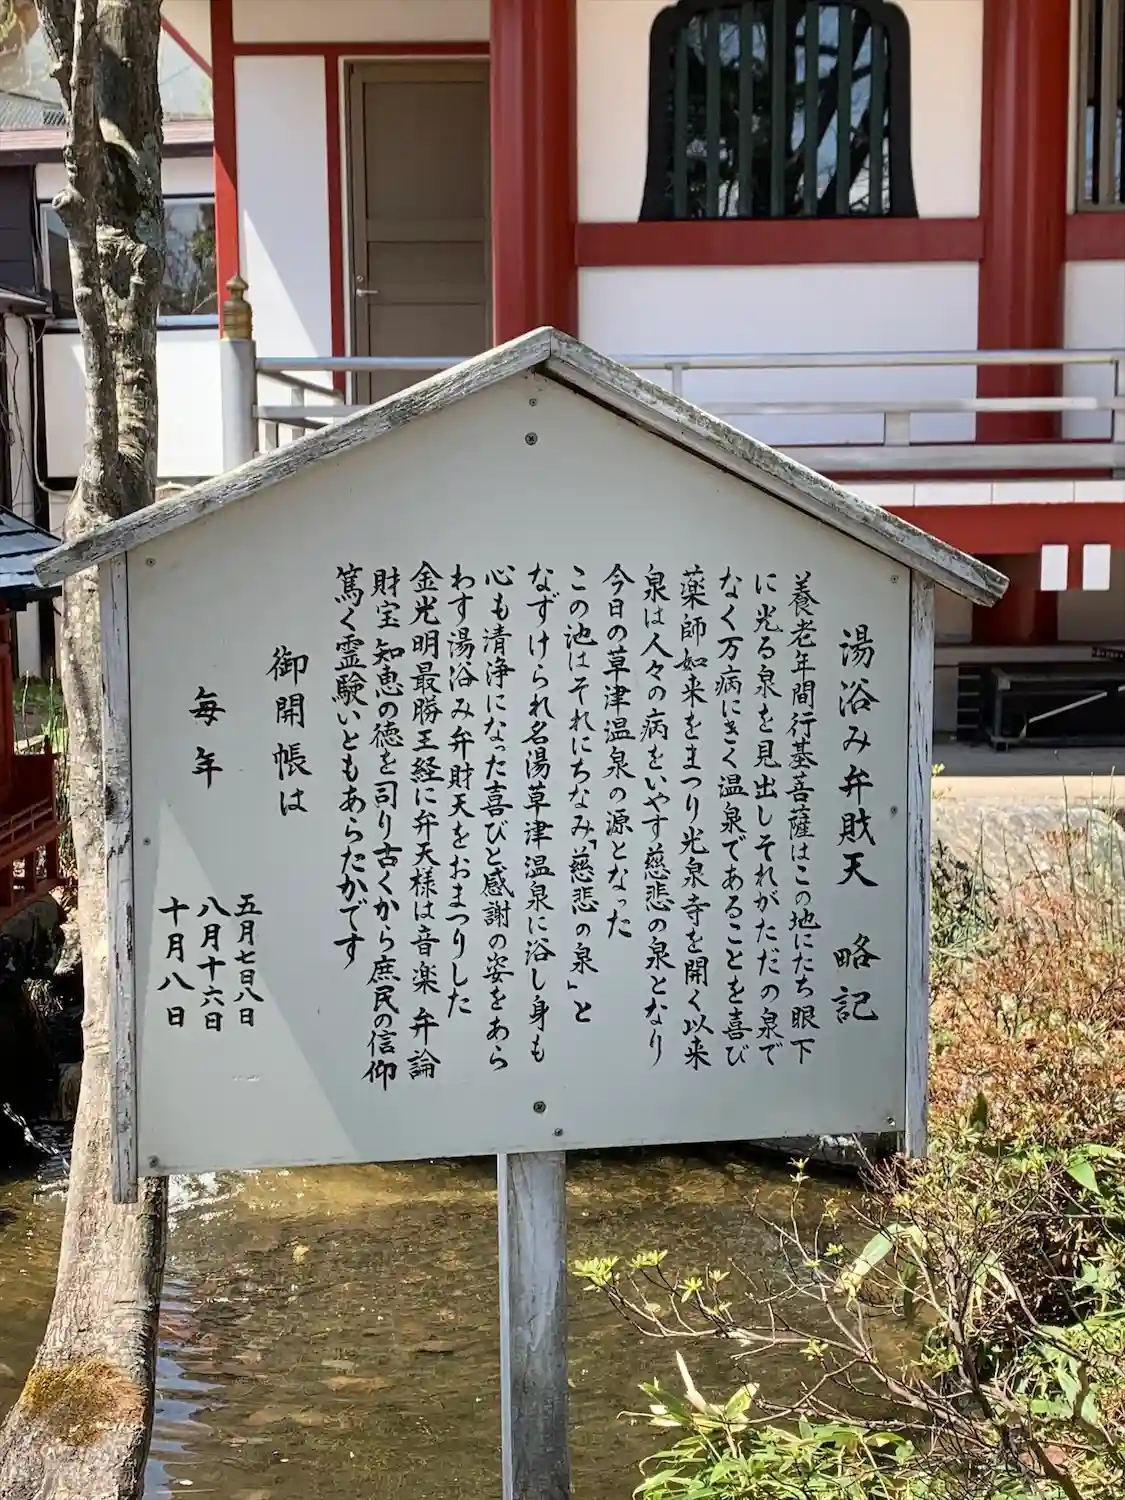 湯浴み弁財天 略記
養老年間行基菩薩はこの地にたち眼下
に光る泉を見出しそれがただの泉で
なく万病にきく温泉であることを喜び
薬師如来をまつり光泉寺を開く以来
泉は人々の病をいやす慈悲の泉となり
今日の草津温泉の源となった
この池はそれにちなみ「慈悲の泉」と
なずけられ名湯草津温泉に浴し身も
心も清浄になった喜びと感謝の姿をあら
わす湯浴み弁財天をおまつりした
金光明最勝王経に弁天様は音楽 弁論
財宝 知恵の徳を司り古くから庶民の信仰
篤く霊験いともあらたかです
御開帳は
毎年
五月七日八日
八月十六日
十月八日